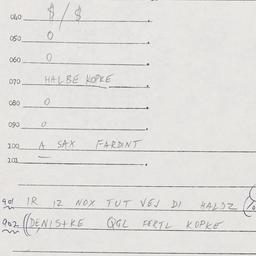 040 $/$
050 0
060 0
070 HALBE KOPKE
080 0
090 0
100 A SAX FARDINT
101 —
901 IR IZ NOX TUT VEJ DI HALDZ
902 DENISTKE QGL FERTL KOPKE